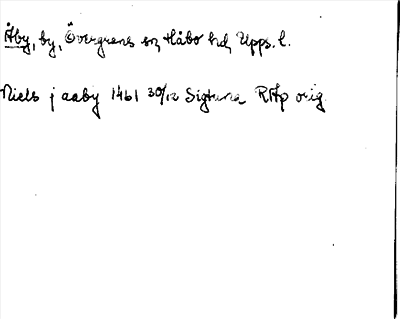 Åby, by, Övergrans sn, Håbo hd, Upps. l.
Niels j aaby 1461 30/12 Sigtuna RAp orig.